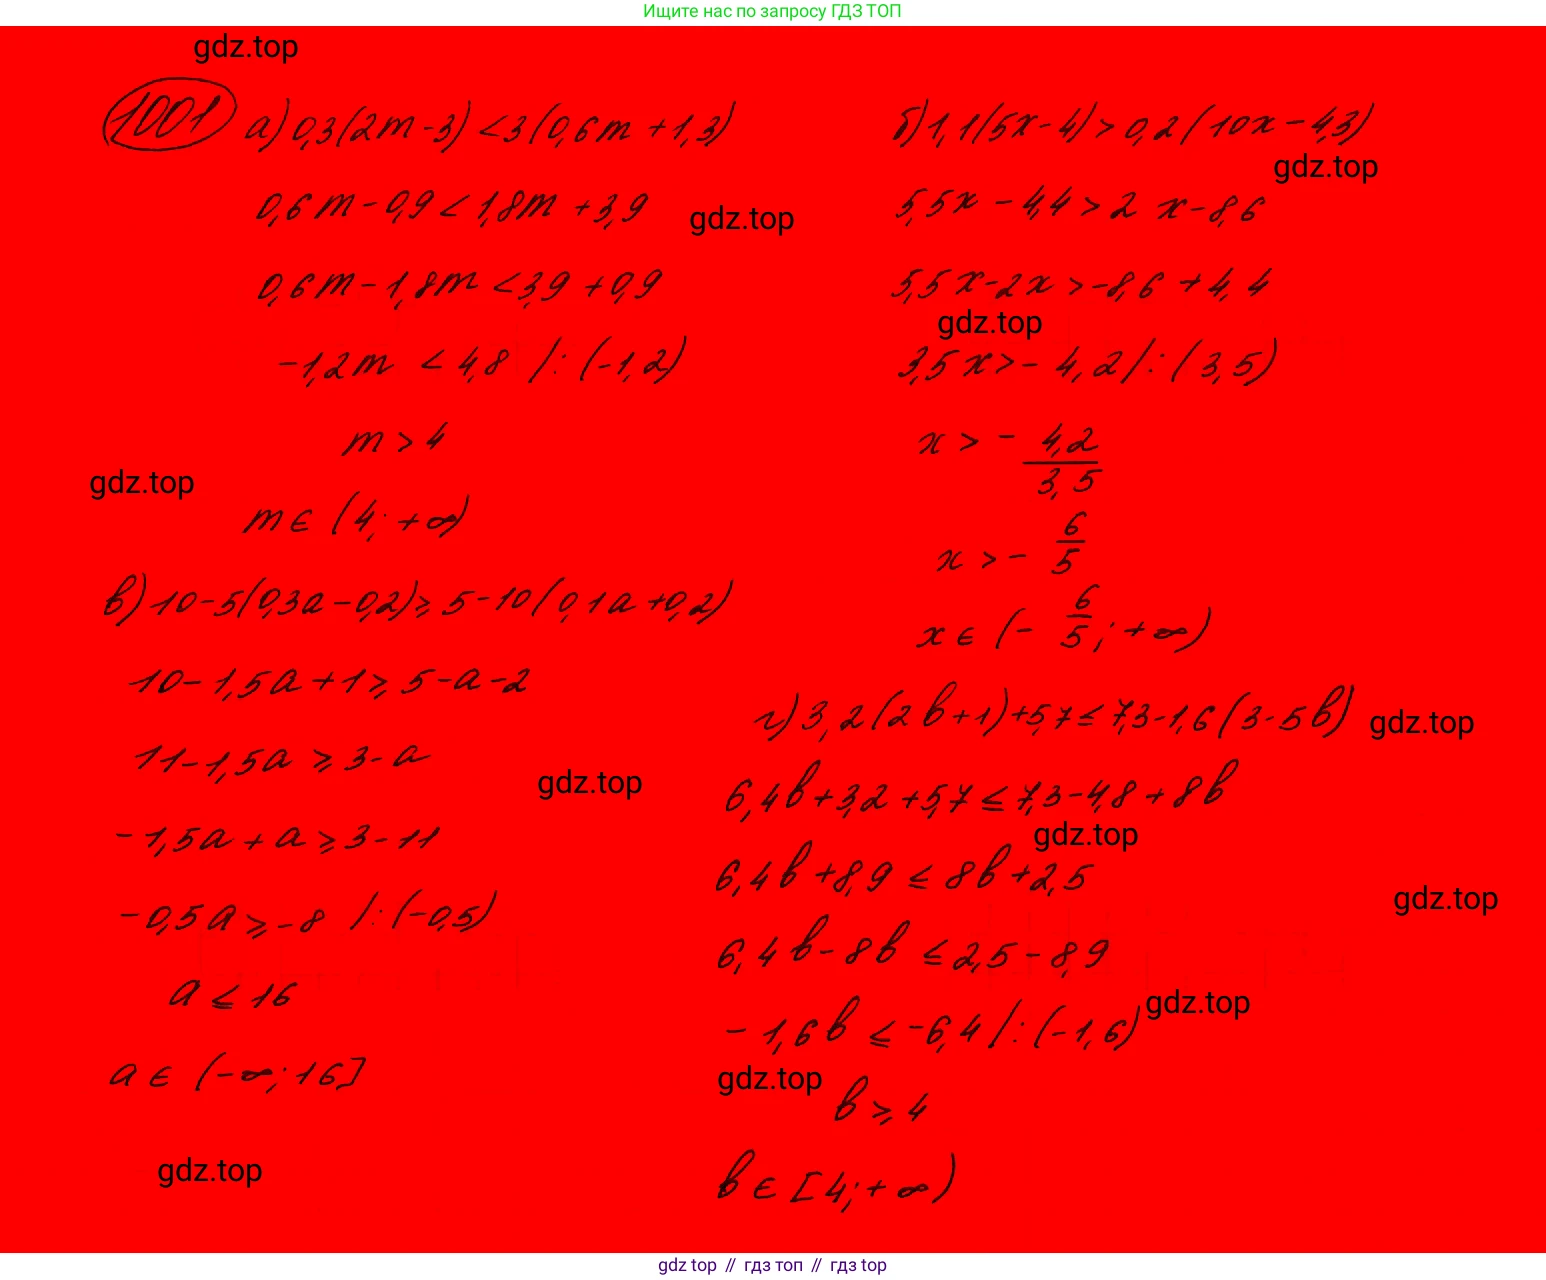 Ищите нас по запросу ГДЗ ТОП
gdz.top
1001 а) 0,3(2m-3) < 3(0,6m+1,3)
0,6m-0,9 < 1,8m+3,9
gdz.top
0,6m-1,8m < 3,9+0,9
-1,2m < 4,8 /:(-1,2)
m > 4
gdz.top
m ∈ (4; +∞)
б) 1,1(5x-4) > 0,2(10x-4,3)
gdz.top
5,5x - 4,4 > 2x-8,6
5,5x-2x > -8,6+4,4
gdz.top
3,5x > -4,2 /:(3,5)
x > - 4,2/3,5
x > - 6/5
x ∈ (- 6/5; +∞)
в) 10-5(0,3a-0,2) ⩾ 5-10(0,1a+0,2)
10-1,5a+1 ⩾ 5-a-2
11-1,5a ⩾ 3-a
gdz.top
-1,5a+a ⩾ 3-11
-0,5a ⩾ -8 /:(-0,5)
a ⩽ 16
a ∈ (-∞; 16]
gdz.top
г) 3,2(2b+1)+5,7 ⩽ 7,3-1,6(3-5b)
gdz.top
6,4b+3,2+5,7 ⩽ 7,3-4,8+8b
gdz.top
6,4b+8,9 ⩽ 8b+2,5
gdz.top
6,4b-8b ⩽ 2,5-8,9
gdz.top
-1,6b ⩽ -6,4 /:(-1,6)
gdz.top
b ⩾ 4
b ∈ [4; +∞)
gdz top // гдз топ // гдз top